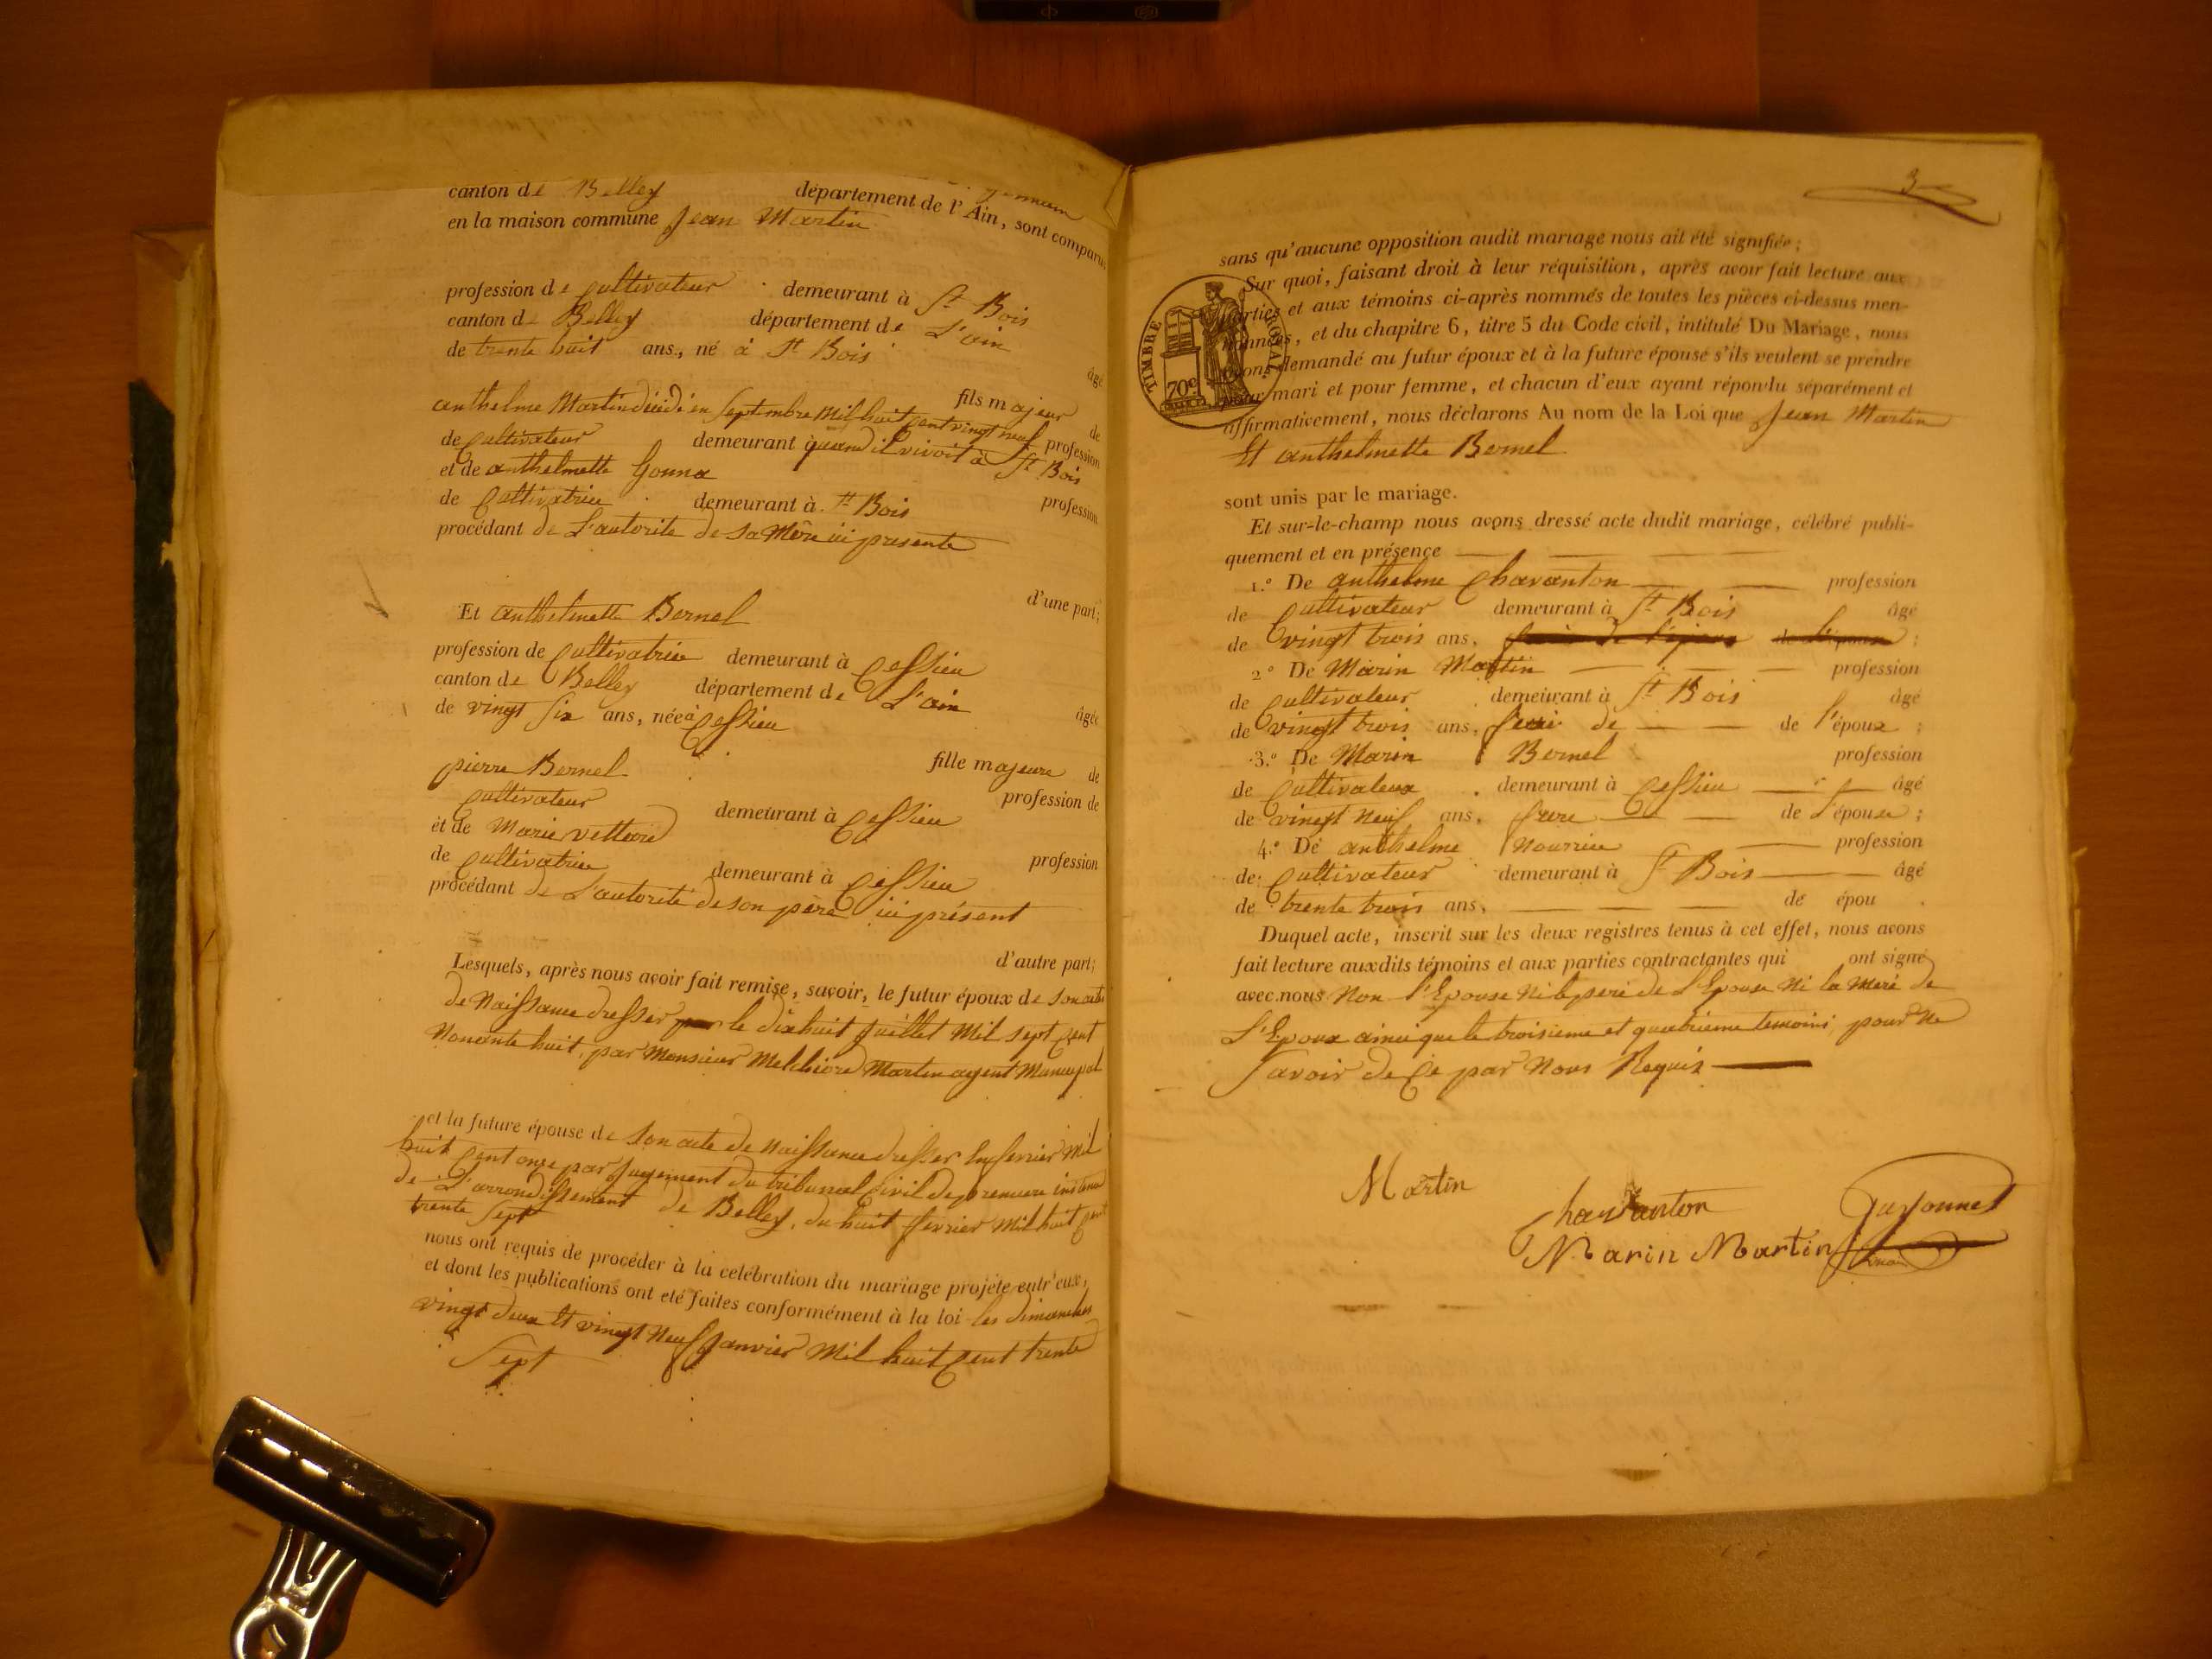 canton de Belley département de l'Ain, sont comparus
en la maison commune Jean Martin
profession de cultivateur demeurant à St Bois
canton de Belley département de L'ain
âgé
de trente huit ans, né à St Bois
fils majeur de
anthelme Martin décédé en septembre mil huit cent vingt neuf profession
de cultivateur demeurant quand il vivoit à St Bois
et de anthelmette Gonna
profession
de Cultivatrice demeurant à St Bois
procédant de L'autorite de sa Mère ici presente
d'une part;
Et anthelmette Bernel
profession de Cultivatrice demeurant à Cessieu
canton de Belley département de L'ain
âgée
de vingt six ans, née à Cessieu
fille majeure de
pierre Bernel
profession de
cultivateur demeurant à Cessieu
et de Marie
profession
de cultivatrice demeurant à Cessieu
procédant de L'autorité de son père ici présent
d'autre part;
Lesquels, après nous avoir fait remise, savoir, le futur époux de son acte
de Naissance dresser le dix huit juillet Mil sept cent
Nonante huit, par Monsieur Melchiore Martin agent Municipal
et la future épouse de son acte de Naissance dresser En fevrier Mil
huit Cent onze par jugement du tribunal Civil de premiere instance
de L'arrondissement de Belley, du huit fevrier Mil huit cent
trente sept
nous ont requis de procéder à la celébration du mariage projeté entr'eux,
et dont les publications ont été faites conformément à la loi les dimanches
vingt deux Et vingt Neuf Janvier Mil huit Cent trente
Sept
3
sans qu'aucune opposition audit mariage nous ait été signifiée;
Sur quoi, faisant droit à leur réquisition, après avoir fait lecture aux
parties et aux témoins ci-après nommés de toutes les pièces ci-dessus men-
tionnées, et du chapitre 6, titre 5 du Code civil, intitulé Du Mariage, nous
avons demandé au futur époux et à la future épouse s'ils veulent se prendre
pour mari et pour femme, et chacun d'eux ayant répondu séparément et
affirmativement, nous déclarons Au nom de la Loi que Jean Martin
TIMBRE ROYAL
70c
Et anthelmette Bernel
sont unis par le mariage.
Et sur-le-champ nous avons dressé acte dudit mariage, célébré publi-
quement et en présence
1.° De anthelme Chavanton profession
de Cultivateur demeurant à St Bois âgé
de vingt trois ans, ;
2.° De Marin Martin profession
de cultivateur demeurant à St Bois âgé
de vingt trois ans, de de l'époux ;
3.° De Marin Bernel profession
de Cultivateur demeurant à Cessieu âgé
de vingt Neuf ans, frere de L'épouse ;
4.° De anthelme Nourrice profession
de Cultivateur demeurant à St Bois âgé
de trente trois ans, de épou .
Duquel acte, inscrit sur les deux registres tenus à cet effet, nous avons
fait lecture auxdits témoins et aux parties contractantes qui ont signé
avec nous Non l'Epouse Ni le pere de L'Epouse Ni la mere de
L'Epoux ainsi que le troisieme et quatrieme temoins, pour Ne
Savoir de Ce par Nous Requis
Martin
Chavanton
Guyonnet
Marin Martin